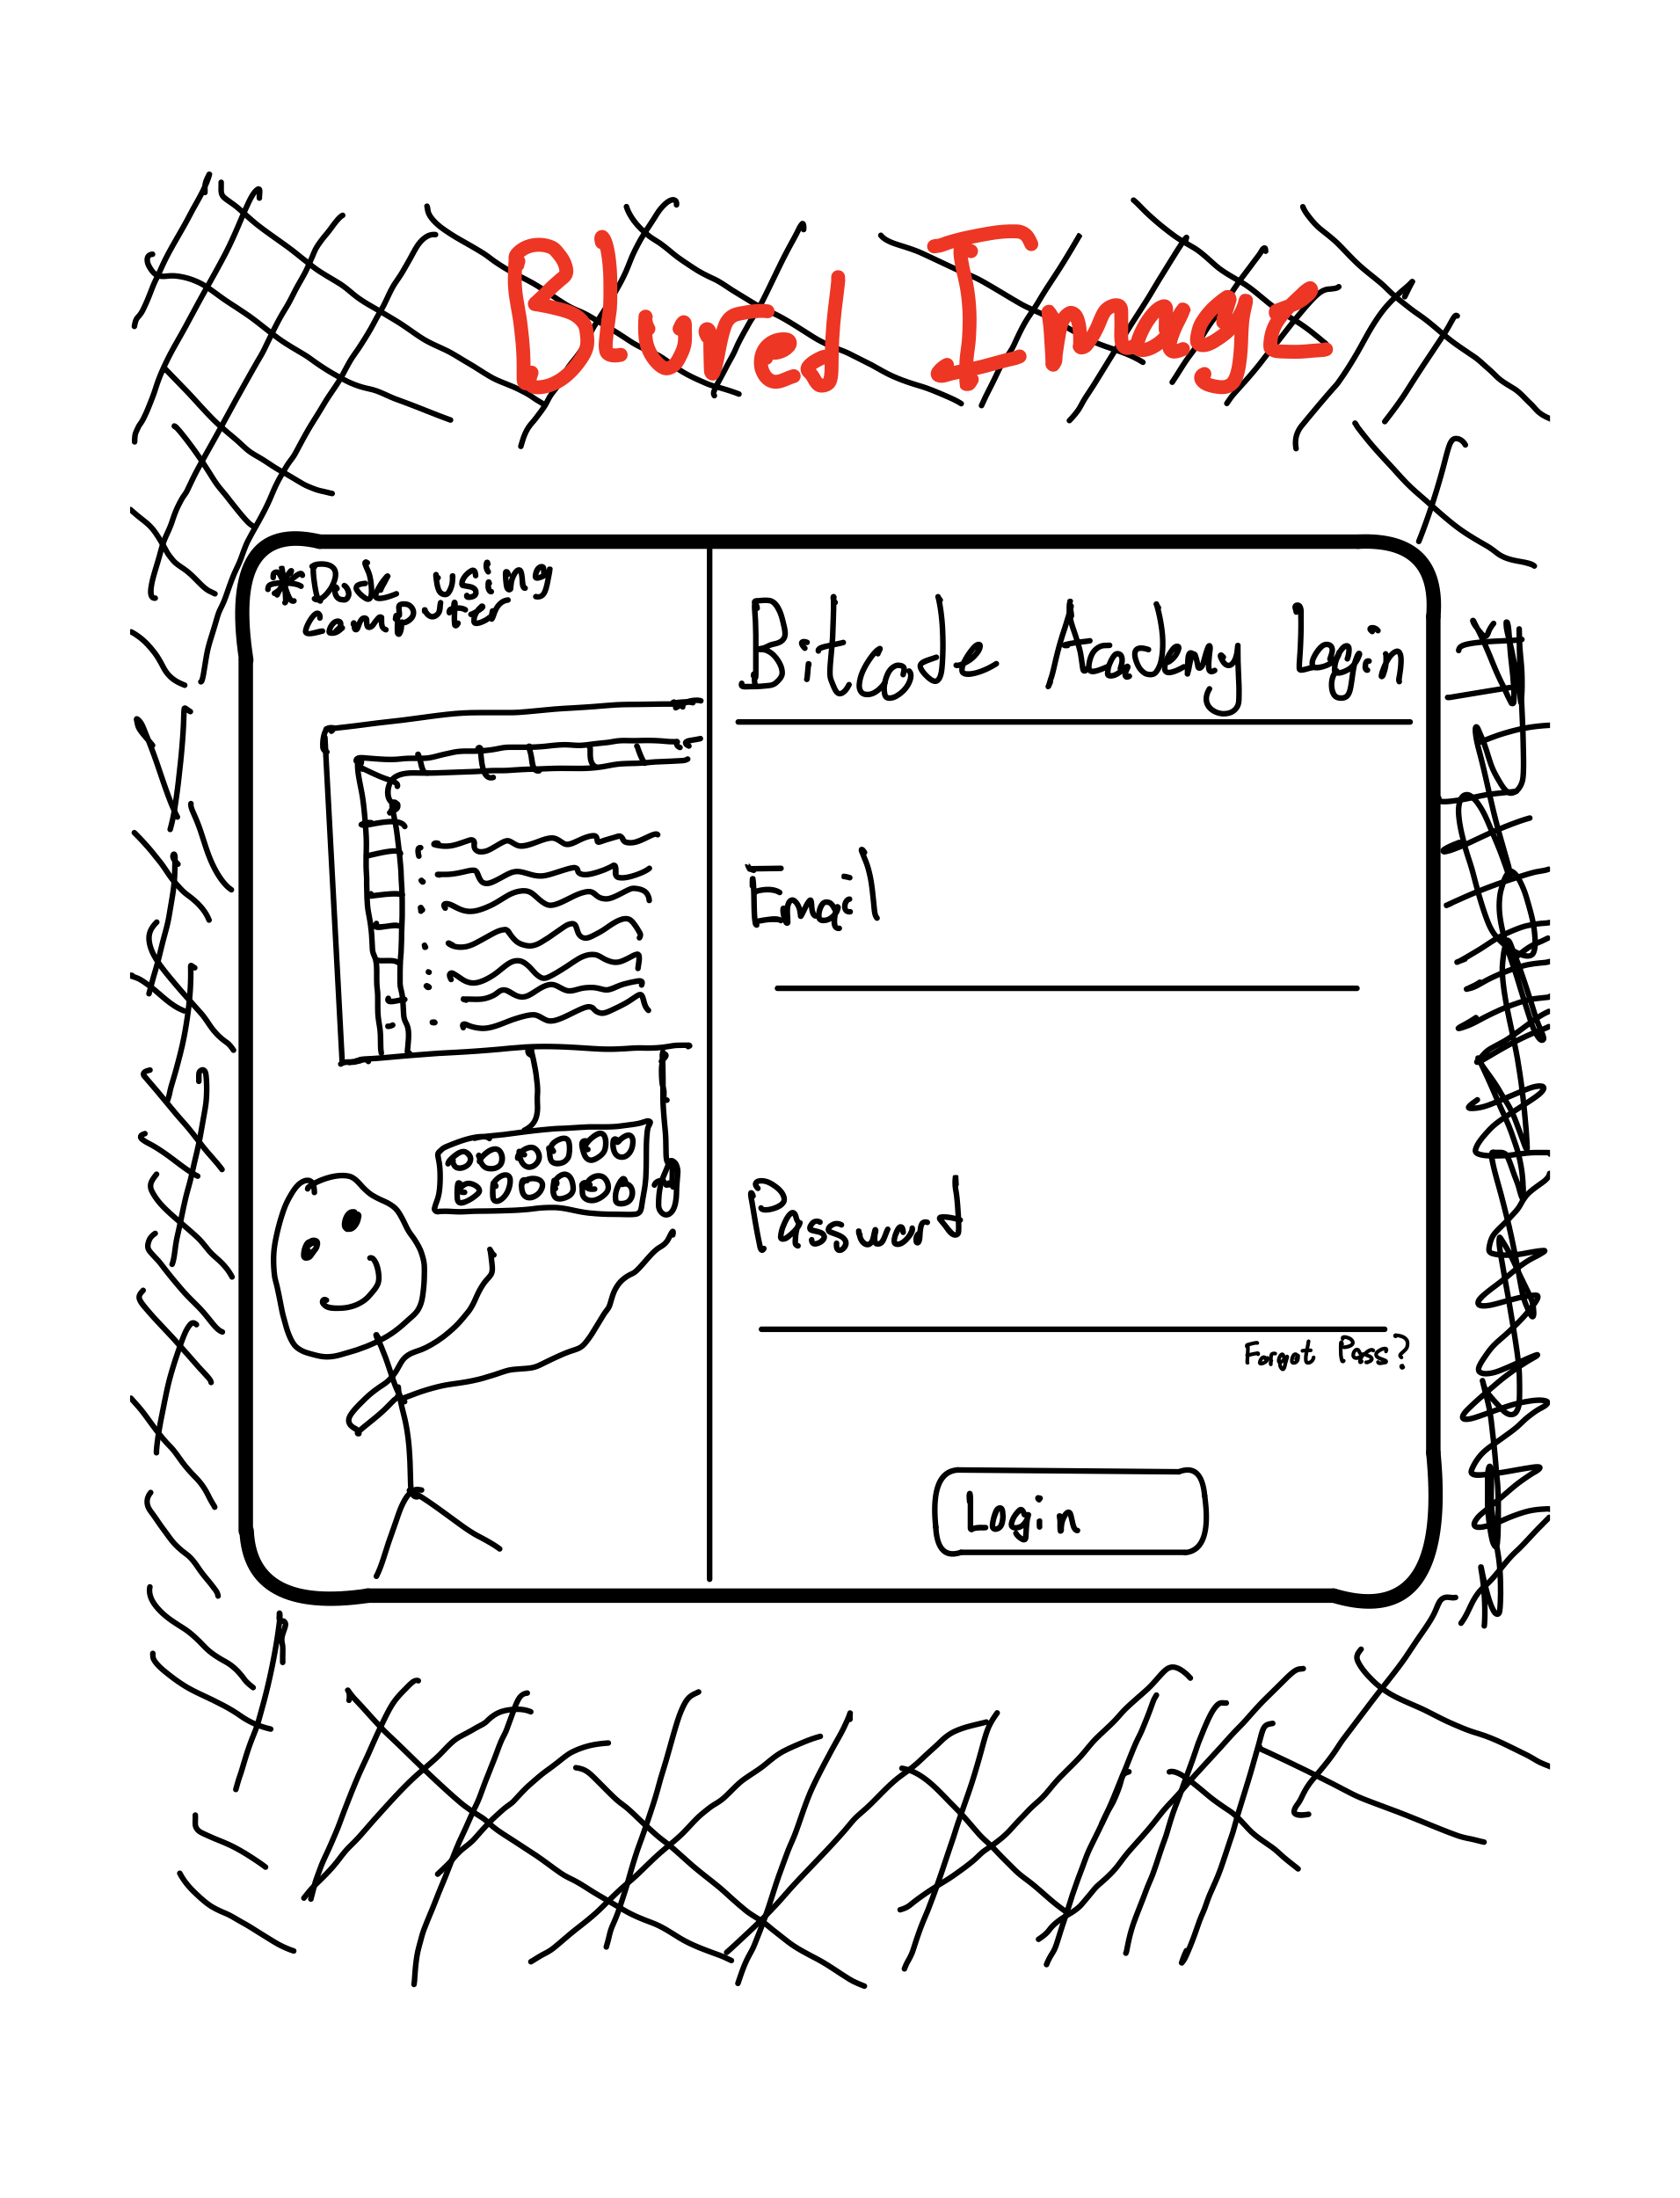 Blured Image
*Dude using
computer
Bitcode Academy Login
Email
Password
Forgot Pass?
Login